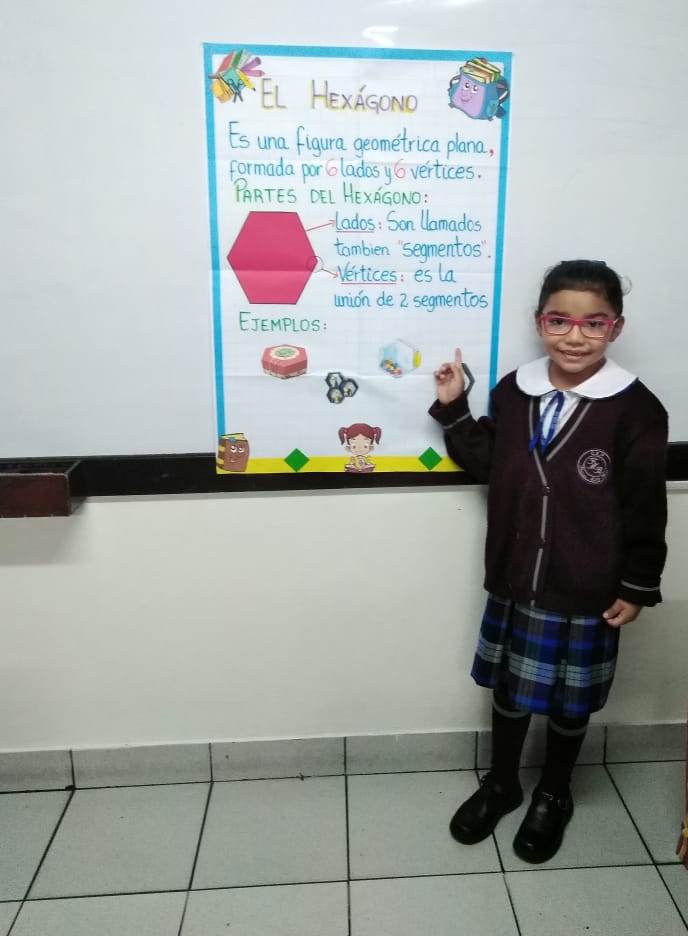 EL HEXÁGONO
Es una figura geométrica plana,
formada por 6 lados y 6 vértices.
PARTES DEL HEXÁGONO:
Lados: Son llamados
tambien "segmentos".
Vértices: es la
unión de 2 segmentos
EJEMPLOS: